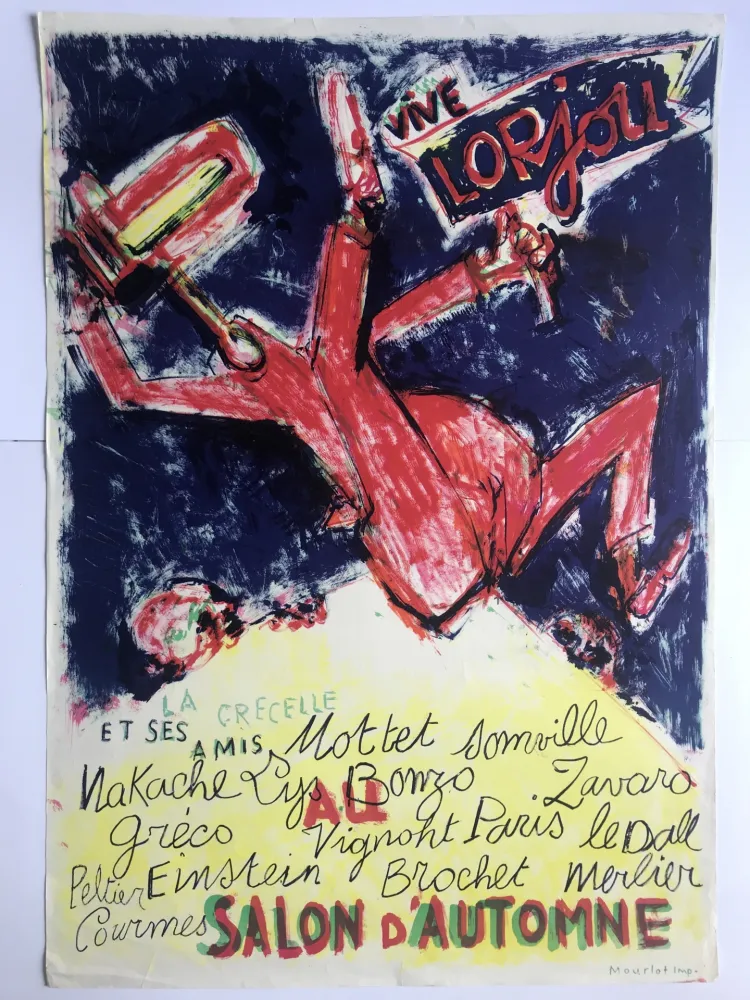 VIVE
LORjOU
LA CRECELLE
ET SES
AMIS
Mottet Somville
Nakache Lys Bonzo Zavaro
AU
Gréco Vignoht Paris le Dall
Peltier Einstein Brochet Merlier
Courmes SALON D'AUTOMNE
Mourlot Imp.